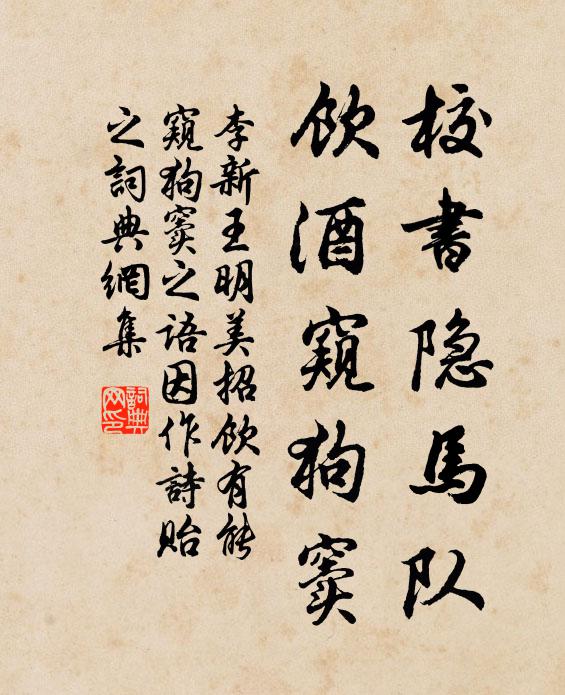 校書隐馬队
飲酒窺狗窦
李新王明美招飲有能
窺狗窦之语因作詩貽
之詞典網集
詞典网印